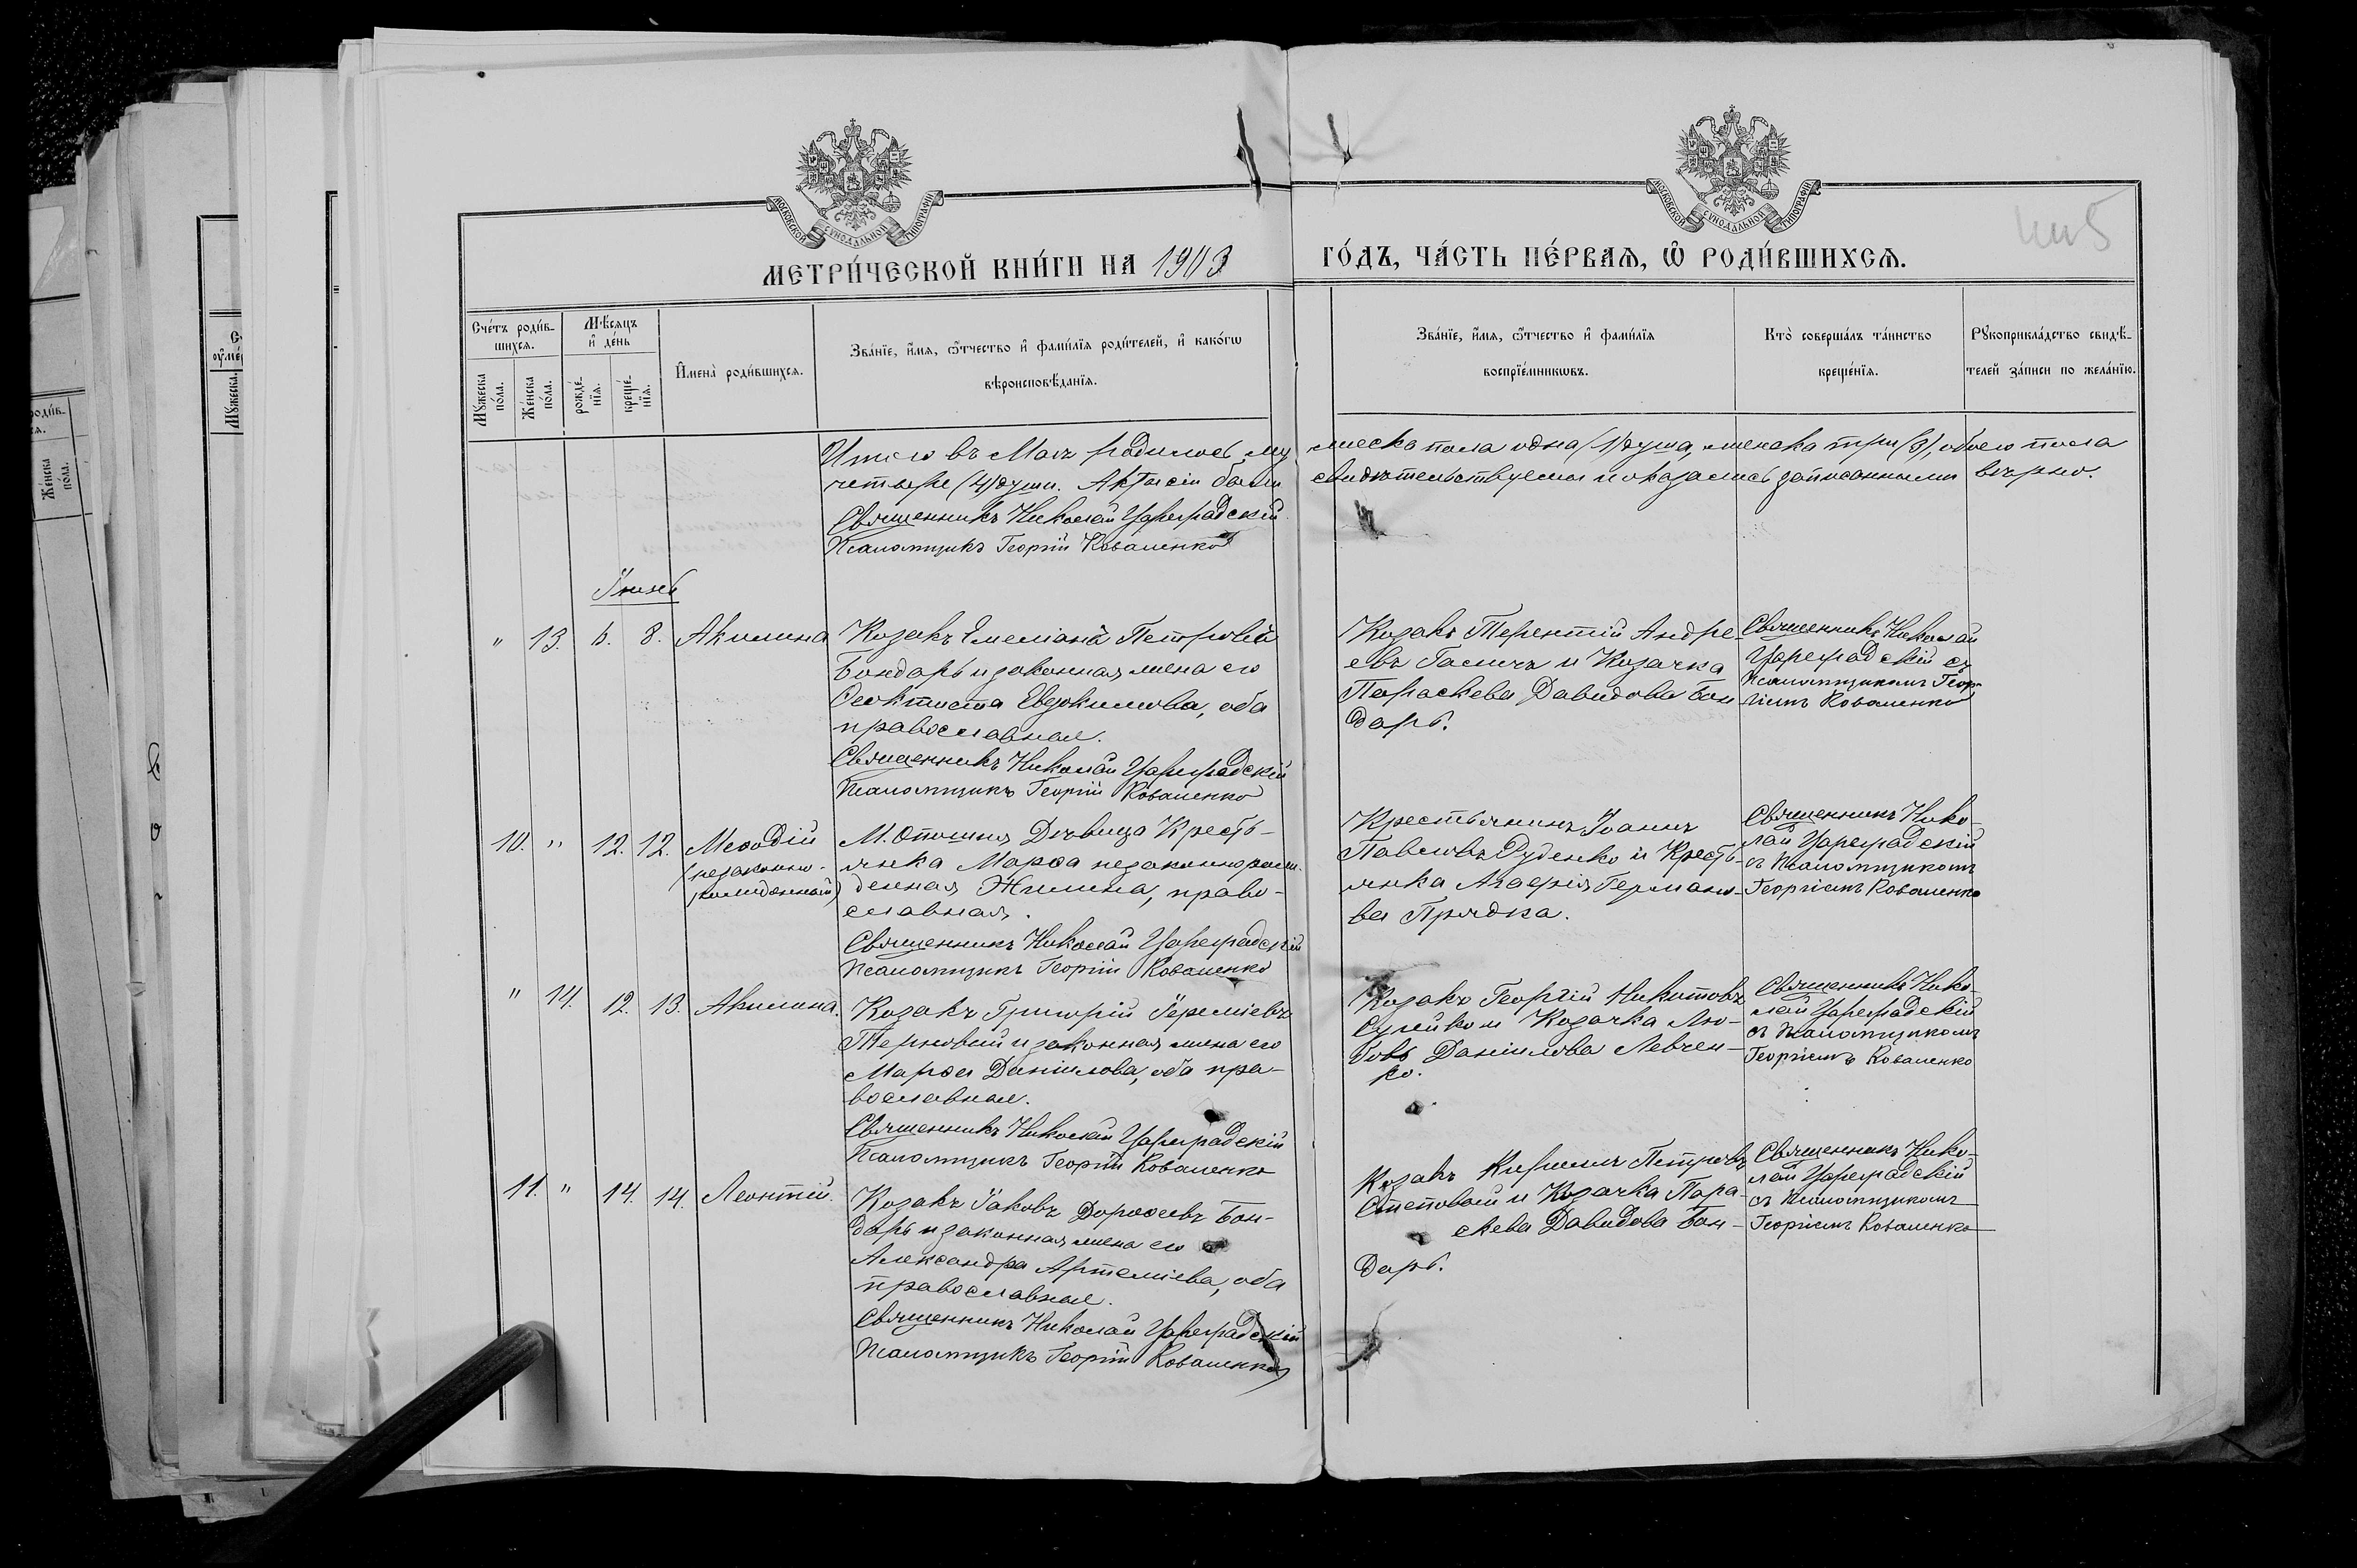 МОСКОВСКОЙ СУНОДАЛЬНОЙ ТИПОГРАФІИ
МОСКОВСКОЙ СУНОДАЛЬНОЙ ТИПОГРАФІИ
МЕТРИ́ЧЕСКОЙ КНИ́ГИ НА 1903
ГО́ДЪ, ЧА́СТЬ ПЕ́РВАѦ, Ѡ҆ РОДИ́ВШИХСѦ.
Сче́тъ роди́в-
шихсѧ.
Мѣ́сѧцъ
и҆ де́нь
Мꙋ́жеска
по́ла.
Же́нска
по́ла.
рожде́-
нїѧ.
креще́-
нїѧ.
И҆мена̀ роди́вшихсѧ.
Зва́нїе, и҆́мѧ, ѻ҆́тчество и҆ фами́лїѧ роди́телей, и҆ како́гѡ
вѣроисповѣ́данїѧ.
Зва́нїе, и҆́мѧ, ѻ҆́тчество и҆ фами́лїѧ
воспрїе́мникѡвъ.
Кто̀ соверша́лъ та́инство
креще́нїѧ.
Рꙋкоприкла́дство свидѣ́-
телей за́писи по жела́нїю.
Итого въ Маѣ родилось му
жеска пола одна (1) душа, женска три (3), обоего пола
четыре (4) души. Акты сіи были
свидѣтельствуемы и оказались записанными вѣрно.
Священникъ Николай Цареградскій
Псаломщикъ Георгій Коваленко
Іюнь
" 13. 6. 8. Акилина
Козакъ Емеліанъ Петровъ
Бондарь и законная жена его
Ѳеоктиста Евдокимова, оба
православные.
Священникъ Николай Цареградскій
Псаломщикъ Георгій Коваленко
Козакъ Терентій Андре-
евъ Галичъ и Козачка
Параскева Давидова Бон-
дарь.
Священникъ Николай
Цареградскій съ
Псаломщикомъ Геор-
гіемъ Коваленко
10. " 12. 12. Меѳодій
(незаконно-
рожденный)
М. Опошня Дѣвица Кресть-
янка Марѳа незаконнорож-
денная Жилина, право-
славная.
Священникъ Николай Цареградскій
Псаломщикъ Георгій Коваленко
Крестьянинъ Іоаннъ
Павловъ Руденко и Кресть-
янка Агафія Германо-
ва Прядка.
Священникъ Нико-
лай Цареградскій
съ Псаломщикомъ
Георгіемъ Коваленко
" 14. 12. 13. Акилина.
Козакъ Григорій Іереміевъ
Терновый и законная жена его
Марѳа Даніилова, оба пра-
вославные.
Священникъ Николай Цареградскій
Псаломщикъ Георгій Коваленко
Козакъ Георгій Никитовъ
и Козачка Лю-
бовь Даніилова Левчен-
ко.
Священникъ Нико-
лай Цареградскій
съ Псаломщикомъ
Георгіемъ Коваленко
11. " 14. 14. Леонтій.
Козакъ Іаковъ Дороѳеевъ Бон-
дарь и законная жена его
Александра Артеміева, оба
православные.
Священникъ Николай Цареградскій
Псаломщикъ Георгій Коваленко
Козакъ Кириллъ Петровъ
Степовой и Козачка Пара-
скева Давидова Бон-
дарь.
Священникъ Нико-
лай Цареградскій
съ Псаломщикомъ
Георгіемъ Коваленко